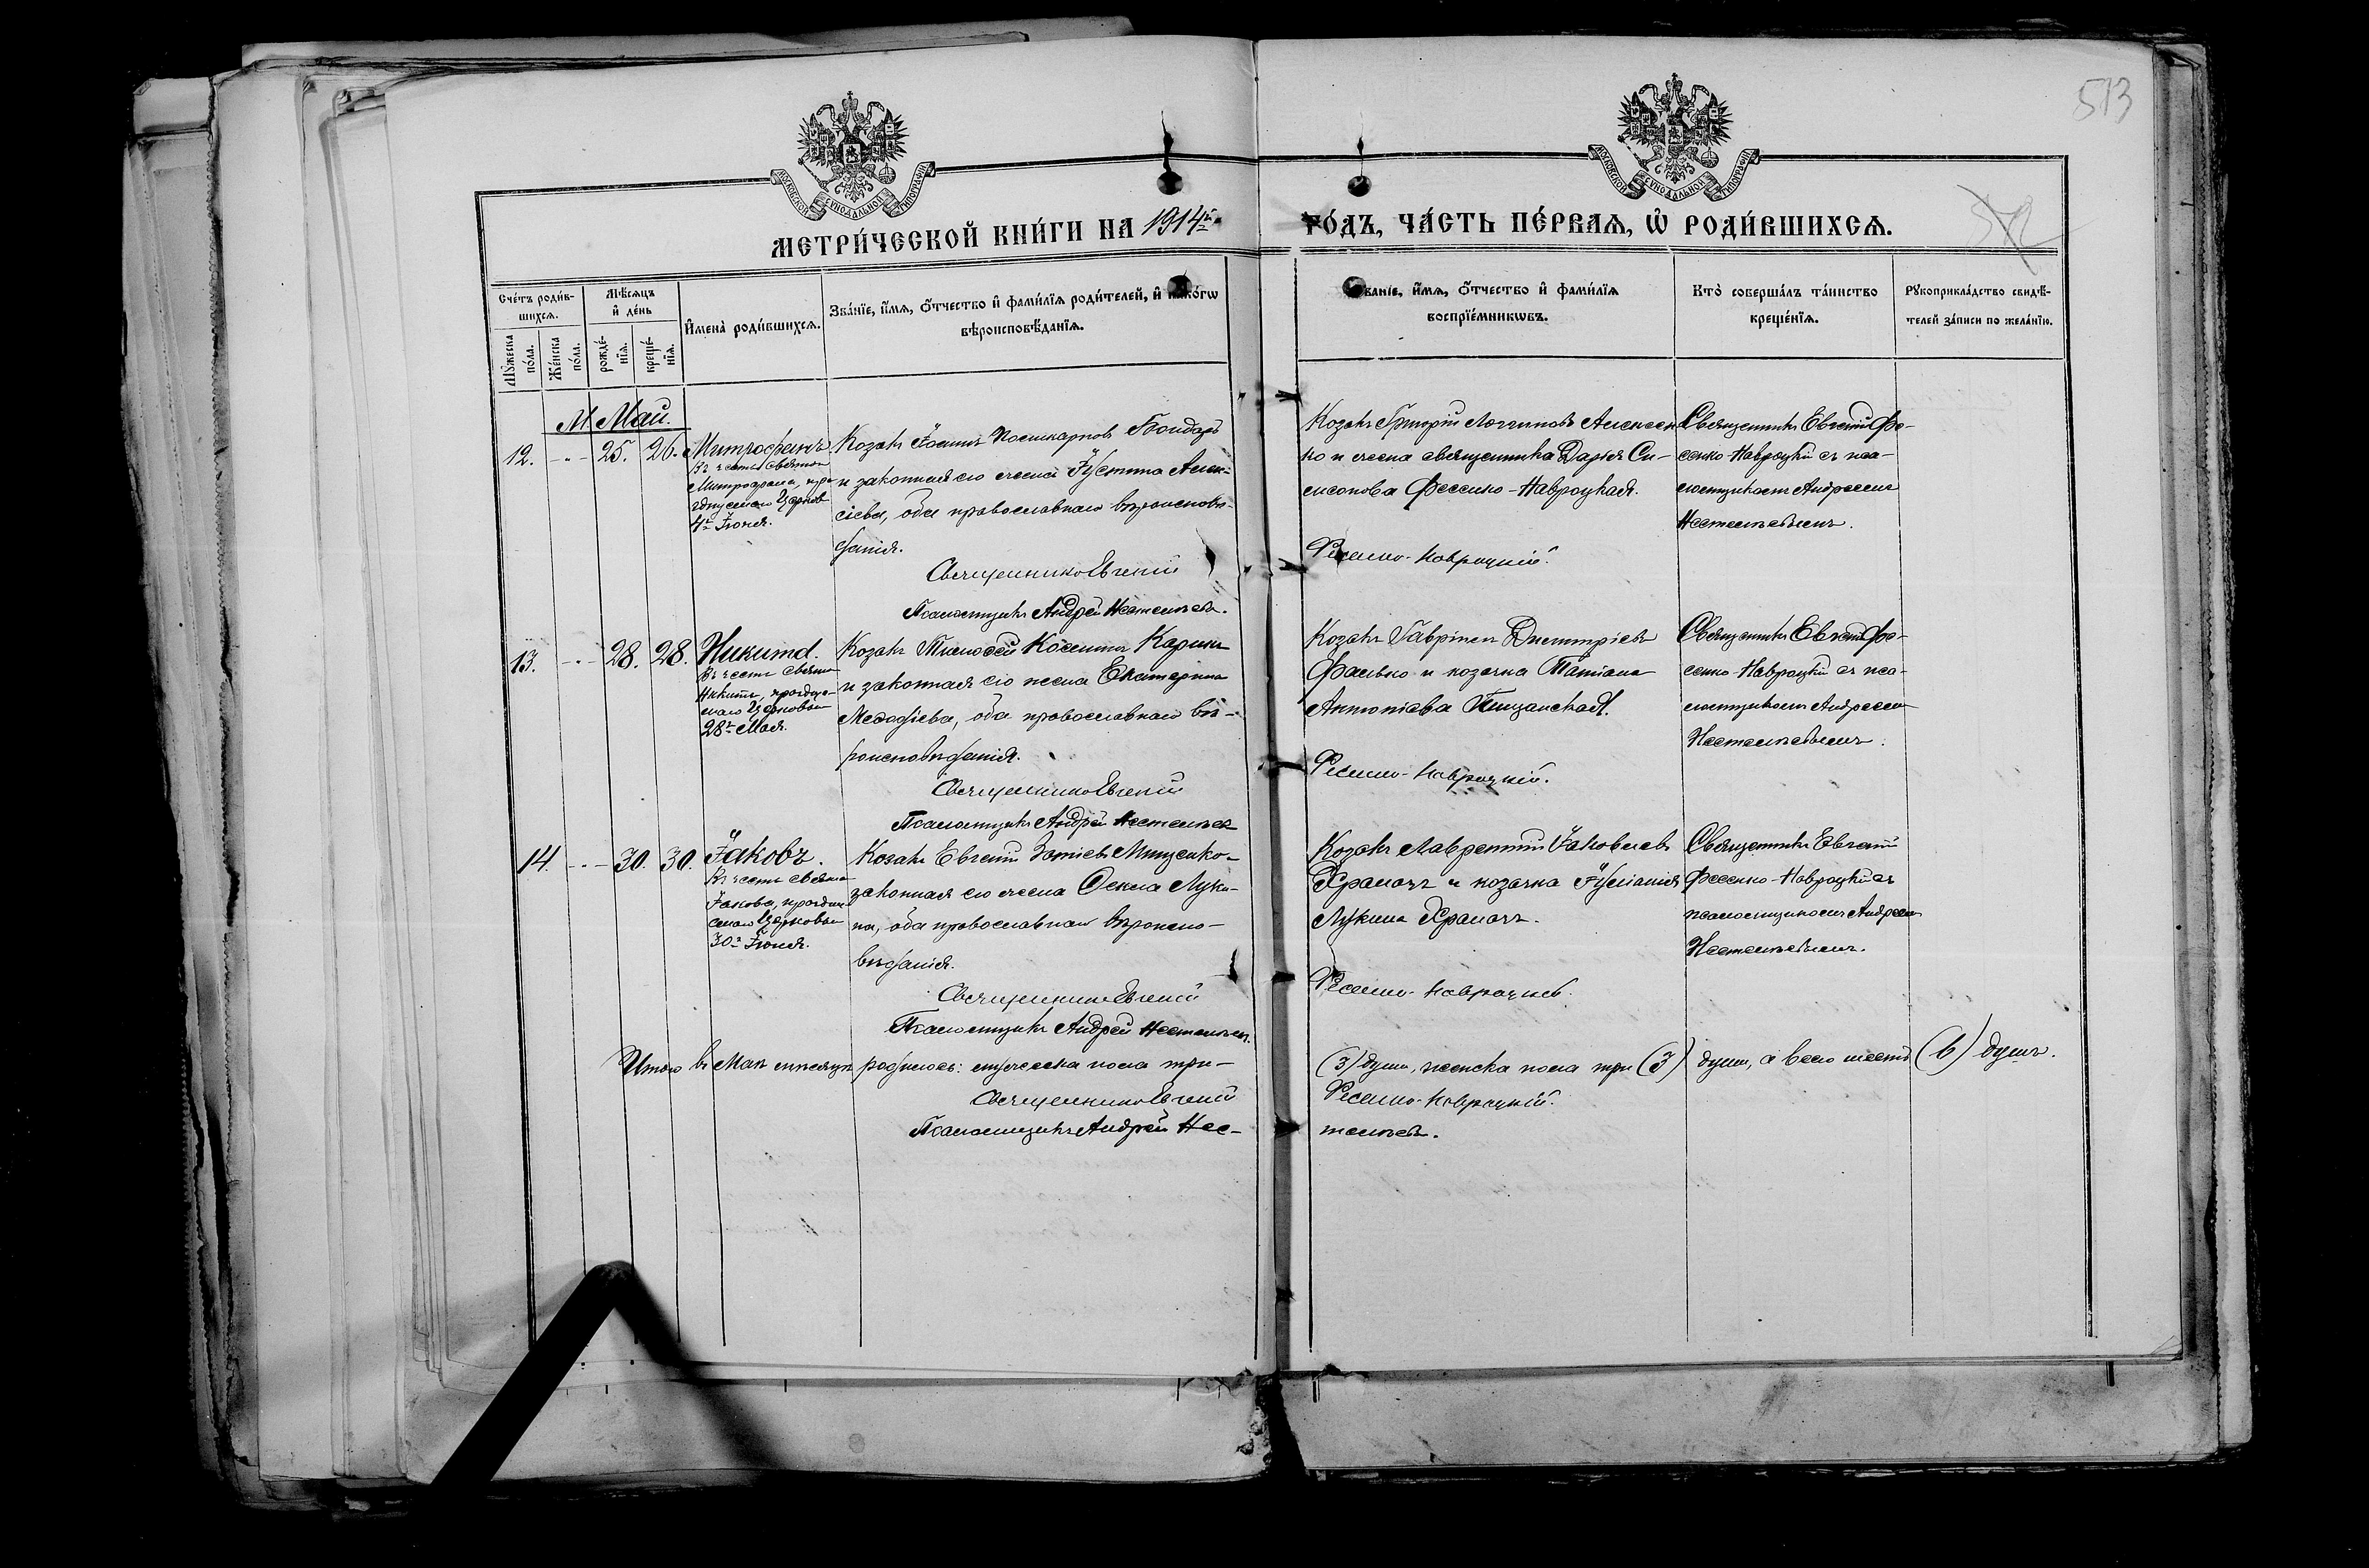 513
572
МОСКОВСКОЙ СѴНОДАЛЬНОЙ ТИПОГРАФІИ
МОСКОВСКОЙ СѴНОДАЛЬНОЙ ТИПОГРАФІИ
МЕТРИ́ЧЕСКОЙ КНИ́ГИ НА 1914й
ГО́ДЪ, ЧА́СТЬ ПЕ́РВАѦ, Ѡ҆ РОДИ́ВШИХСѦ.
Сче́тъ роди́в-
шихсѧ.
Мꙋ́жеска
по́ла.
Же́нска
по́ла.
Мѣ́сѧцъ
и҆ де́нь
рожде́-
нїѧ.
креще́-
нїѧ.
И҆мена̀ роди́вшихсѧ.
Зва́нїе, и҆́мѧ, ѻ҆́тчество и҆ фамѝлїѧ роди́телей, и҆ како́гѡ
вѣроисповѣ́данїѧ.
Зва́нїе, и҆́мѧ, ѻ҆́тчество и҆ фамѝлїѧ
воспрїе́мникѡвъ.
Кто̀ соверша́лъ та́инство
креще́нїѧ.
Рꙋкоприкла́дство свидѣ́-
телей за́писи по жела́нїю.
М. Май.
12. -"- 25. 26. Митрофанъ.
Въ честь святого
Митрофана, пра-
зднуемаго Церков
4го Іюня.
Козакъ Іоаннъ Поликарповъ Бондарь
и законная его жена Іустина Алек-
сіева, оба православнаго вѣроисповѣ-
данія.
Священникъ Евгеній
Псаломщикъ Андрей Нестельевъ.
Козакъ Григорій Логгиновъ Алексеен-
ко и жена священника Дарія Си-
мсонова Фесенко-Навроцкая.
Фесенко-Навроцкій.
Священникъ Евгеній Фе-
сенко-Навроцкій съ пса-
ломщикомъ Андреемъ
Нестельевымъ.
13. -"- 28. 28. Никита.
Въ честь святого
Никиты, праздну-
емаго Церковью
28го Мая.
Козакъ Тимоѳей Косминъ Карпин
и законная его жена Екатерина
Меѳодіева, оба православнаго вѣ-
роисповѣданія.
Священникъ Евгеній
Псаломщикъ Андрей Нестельевъ
Козакъ Гавріилъ Димитріевъ
Фалько и козачка Татіана
Антоніева Пищанская.
Фесенко-Навроцкій.
Священникъ Евгеній Фе-
сенко-Навроцкій съ пса-
ломщикомъ Андреемъ
Нестельевымъ.
14. -"- 30. 30. Іаковъ.
Въ честь святого
Іакова, праздну-
емаго Церковью
30го Іюня.
Козакъ Евгеній Мищенко-
законная его жена Ѳекла Луки-
на, оба православнаго вѣроиспо-
вѣданія.
Священникъ Евгеній
Псаломщикъ Андрей Нестельевъ.
Козакъ Лаврентій Іаковлевъ
Храмачъ и козачка Іуліанія
Лукина Храмачъ.
Фесенко-Навроцкій.
Священникъ Евгеній
Фесенко-Навроцкій съ
псаломщикомъ Андреемъ
Нестельевымъ.
Итого въ Маѣ мѣсяцѣ родилось: мужеска пола три- (3) души, женска пола три (3) души, а всего шесть (6) душъ.
Священникъ Евгеній Фесенко-Навроцкій.
Псаломщикъ Андрей Нес- тельевъ.